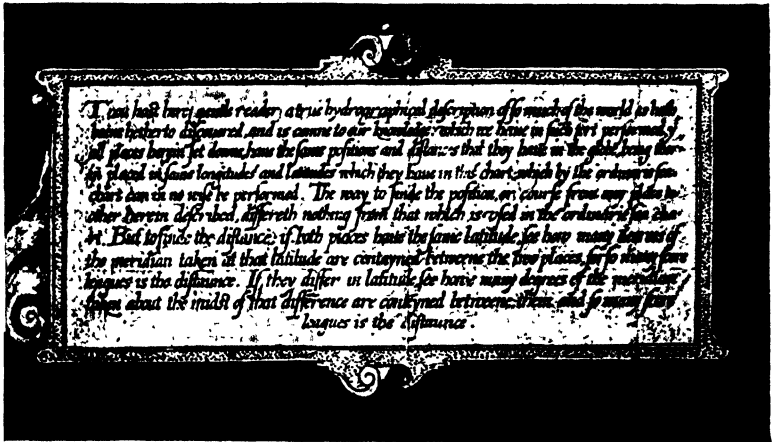 Thou hast here, gentle reader, a true hydrographical description of so much of the world as hath
beene hetherto discouered, and is comne to our knowledge: which we haue in such sort performed, yt
all places herein set downe, haue the same positions and distances that they haue in the globe, being ther
in placed in same longitudes and latitudes which they haue in this chart, which by the ordinarie sea
chart can in no wise be performed. The way to finde the position, or course from any place to
other herein described, differeth nothing from that which is vsed in the ordinarie sea char
But to finde the distance; if both places haue the same latitude, see how many degrees of
the meridian taken at that latitude are conteyned betweene the two places, for so many score
leagues is the distaunce. If they differ in latitude, see howe many degrees of the meridian
taken about the midst of that difference are conteyned betweene them, and so many score
leagues is the distaunce.